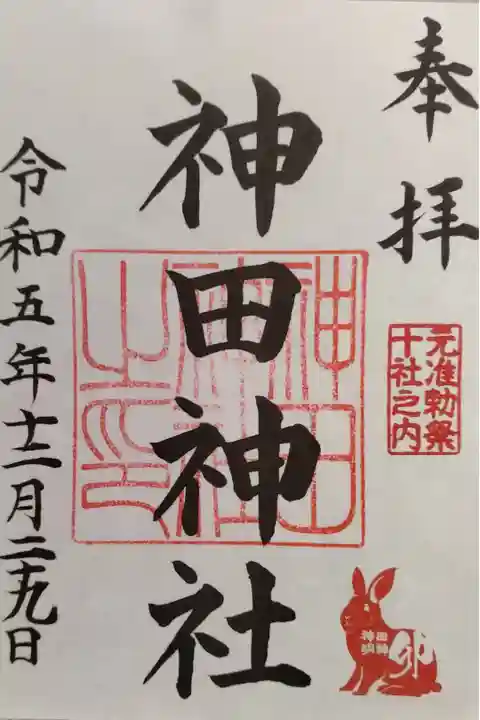 奉拝
元准勅祭
十社之内
神田神社
神田神社之印
神田
明神
卯
令和五年十二月二十九日